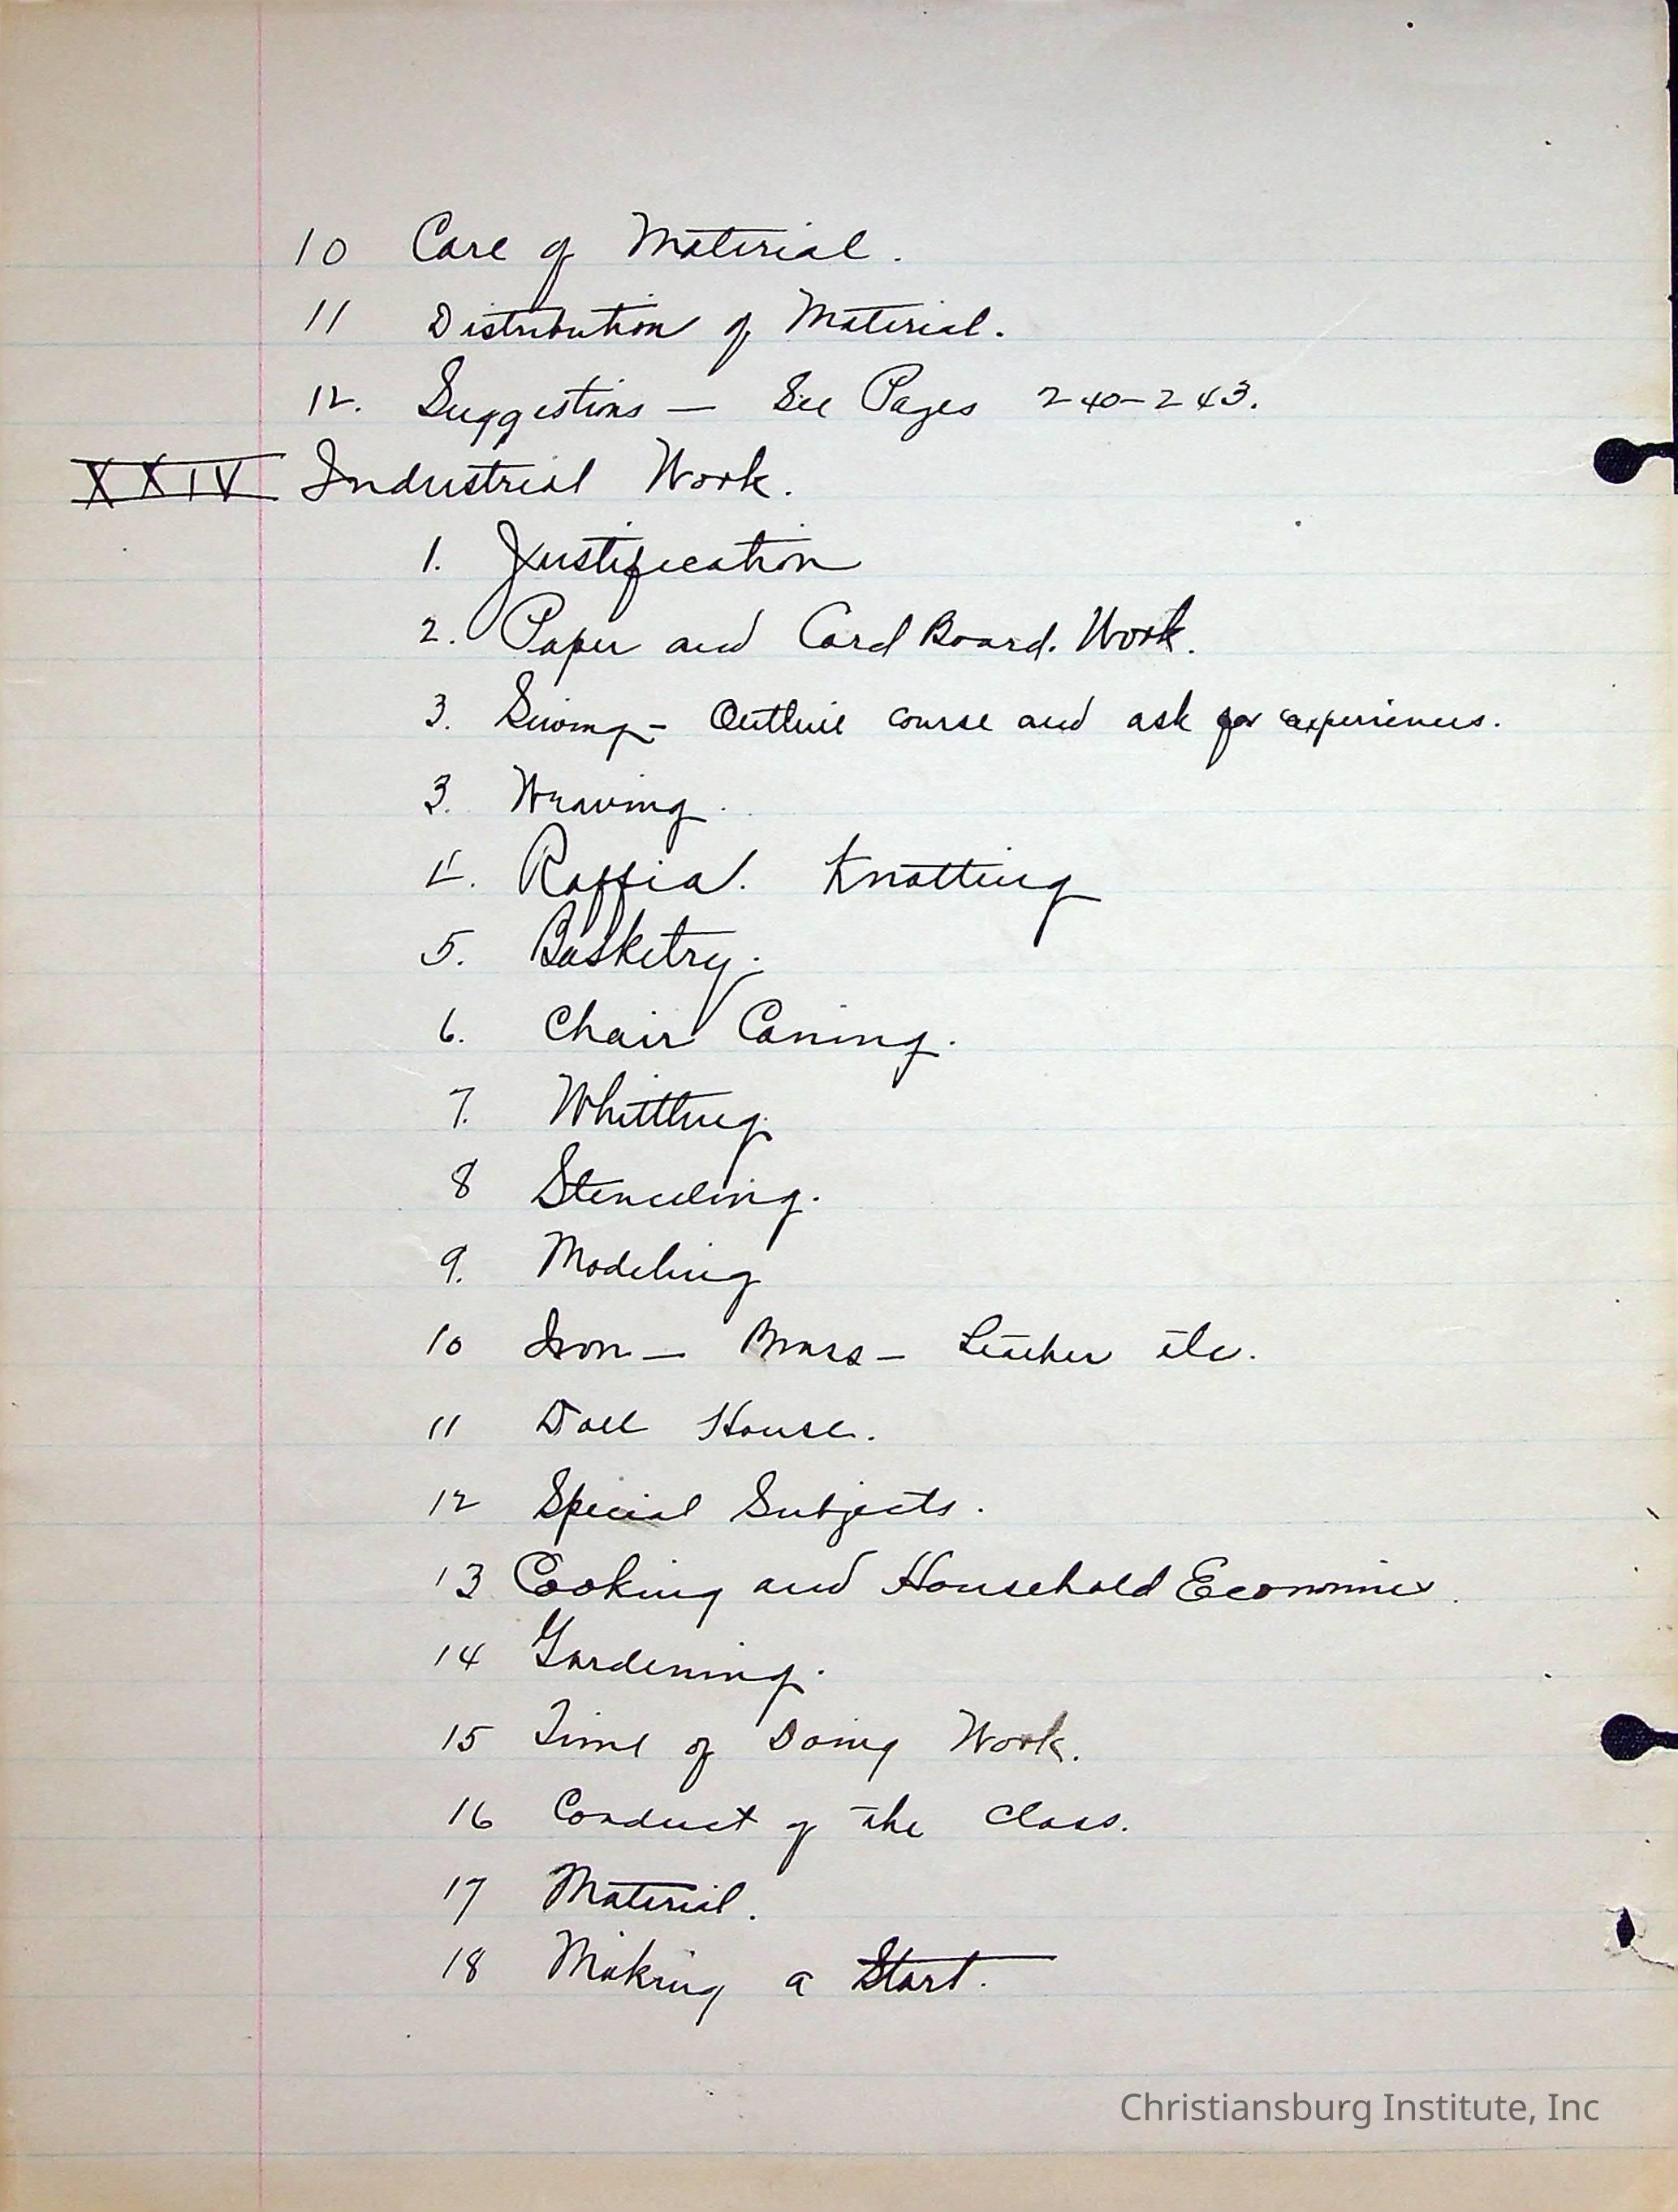 10 Care of Material.
11 Distribution of Material.
12. Suggestions — See Pages 240-243.
XXIV Industrial Work.
1. Justification
2. Paper and Card Board. Work.
3. Sewing - Outline course and ask for experiences.
3. Weaving.
4. Raffia. Knotting
5. Basketry.
6. Chair Caning.
7. Whittling.
8 Stenciling.
9. Modeling
10 Iron — Brass — Leather etc.
11 Doll House.
12 Special Subjects.
13 Cooking and Household Economics.
14 Gardening.
15 Time of Doing Work.
16 Conduct of the Class.
17 Material.
18 Making a Start.
Christiansburg Institute, Inc